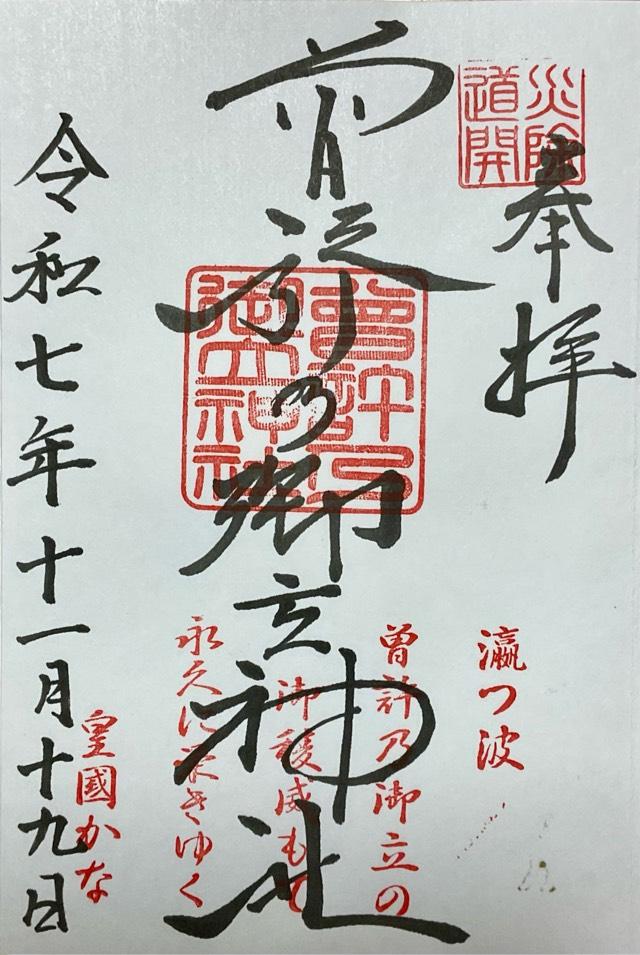 災除
道開
奉拝
曽許乃御立神社
曾許乃
御立神社
瀛つ波
曽許乃御立の
御稜威もて
永久に栄きゆく
皇國かな
令和七年十一月十九日